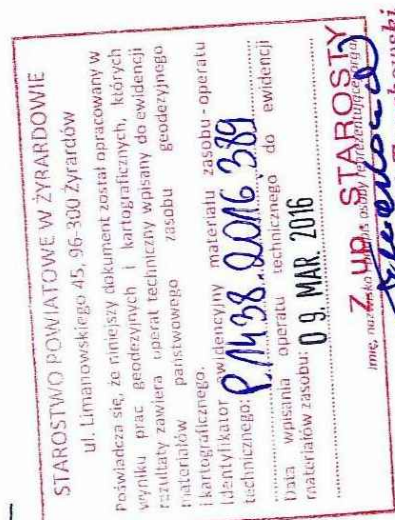 STAROSTWO POWIATOWE W ŻYRARDOWIE
ul. Limanowskiego 45, 96-300 Żyrardów
Poświadcza się, że niniejszy dokument został opracowany w
wyniku prac geodezyjnych i kartograficznych, których
rezultaty zawiera operat techniczny wpisany do ewidencji
materiałów państwowego zasobu geodezyjnego
i kartograficznego.
Identyfikator ewidencyjny materiału zasobu - operatu
technicznego: P.1438.2016.389
Data wpisania operatu technicznego do ewidencji
materiałów zasobu: 09. MAR. 2016
Z up. STAROSTY
Imię, nazwisko i podpis osoby reprezentującej organ